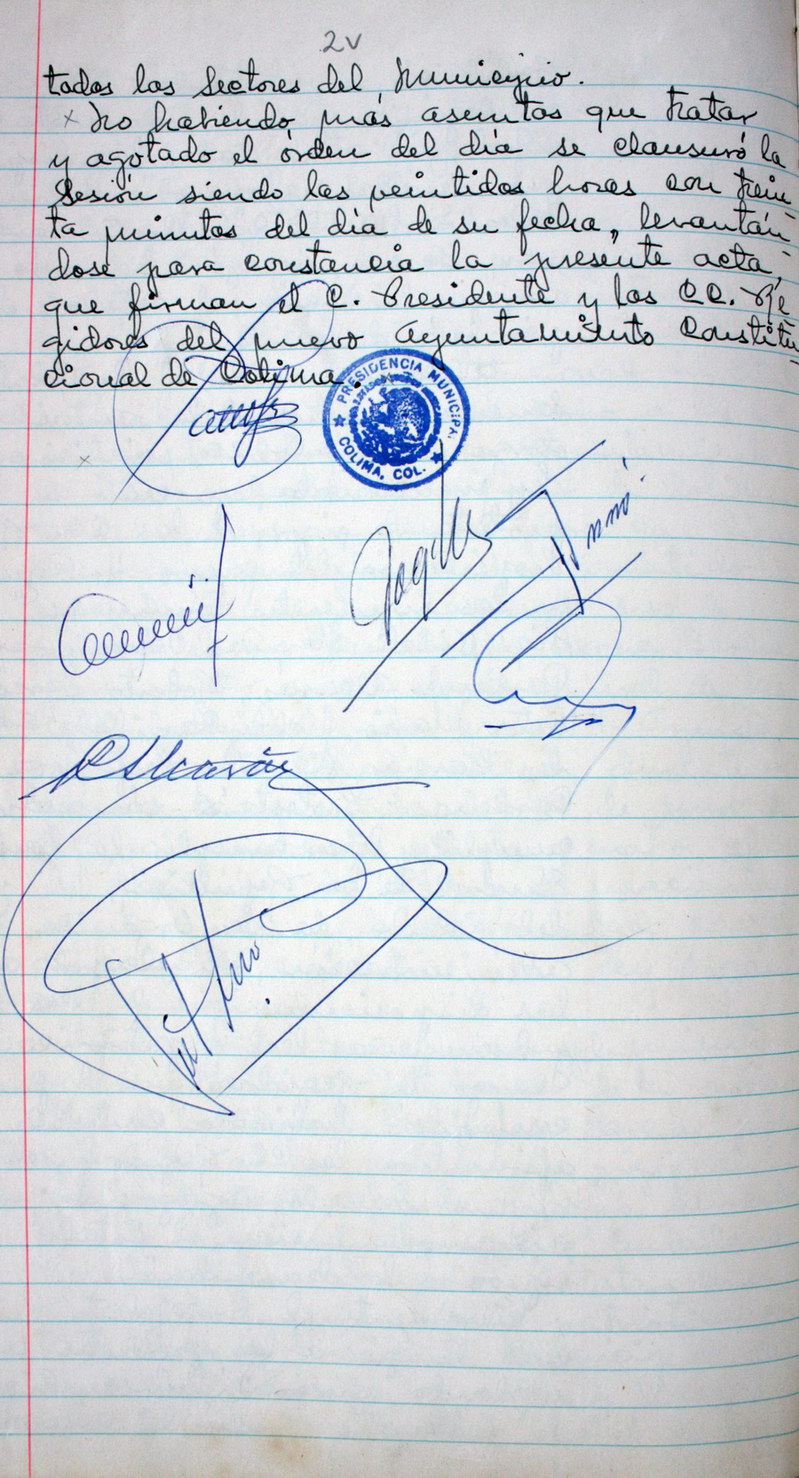 2v
todos los Sectores del Municipio.
x No habiendo más asuntos que tratar
y agotado el órden del día se clausuró la
Sesión siendo las veintidos horas con trein
ta minutos del día de su fecha, levantán
dose para constancia la presente acta,
que firman el C. Presidente y los CC. Re
gidores del nuevo Ayuntamiento Constitu
cional de Colima.
PRESIDENCIA MUNICIPAL
COLIMA, COL.
x